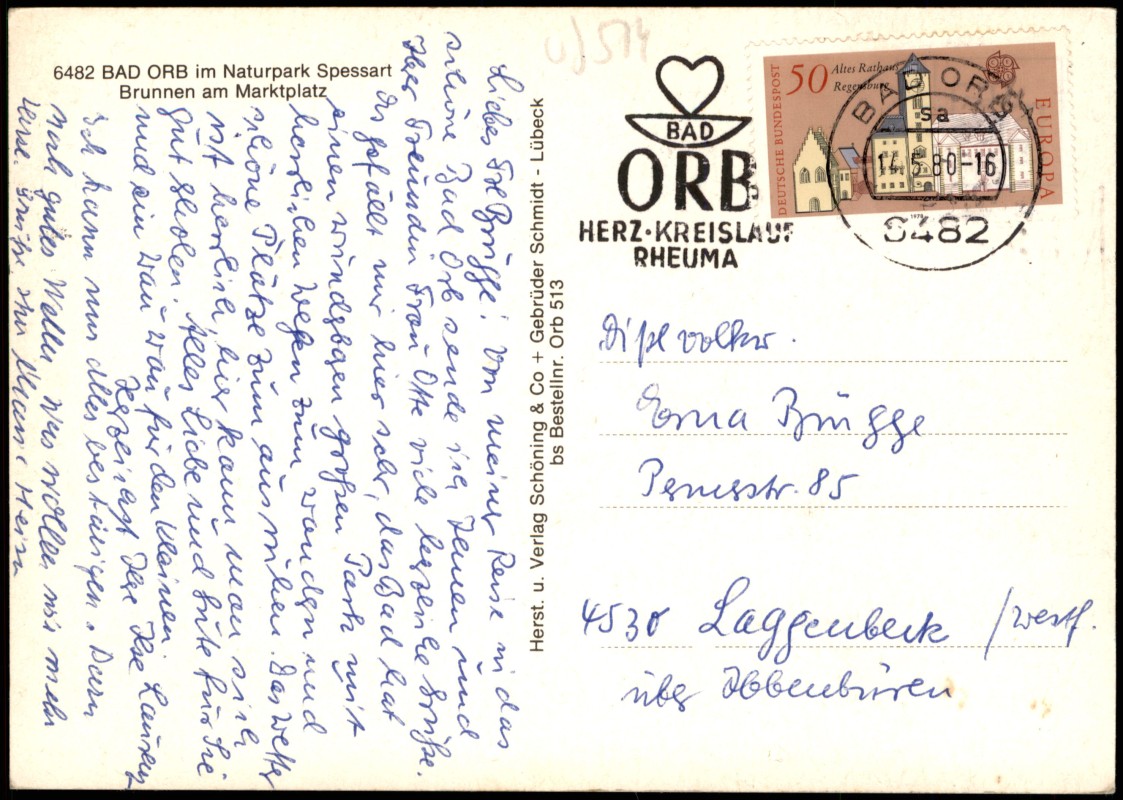 6482 BAD ORB im Naturpark Spessart
Brunnen am Marktplatz
Liebes Frl Brügge! Von meiner Reise in das
schöne Bad Orb sende ich Ihnen und
Ihrer Freundin Frau Otte viele herzliche Grüße.
Es gefällt mir hier sehr, das Bad hat
einen wunderbaren großen Park mit
herrlichen Wegen zum wandern und
schöne Plätze zum ausruhen. Das Wetter
ist herrlich, hier kann man sich
gut erholen. Alles Liebe und Gute für Sie
und ein wau wau für den Kleinen.
Herzlichst Ihre Ilse
Ich kann nur alles bestätigen. Dazu
noch gutes Wetter, was wollen wir mehr
Grüße
Herst. u. Verlag Schöning & Co + Gebrüder Schmidt - Lübeck
bs Bestellnr. Orb 513
BAD
ORB
HERZ·KREISLAUF
RHEUMA
50
Altes Rathaus
Regensburg
DEUTSCHE BUNDESPOST
EUROPA
1978
BAD ORB
sa
14.5.80-16
6482
Dipl volkw.
Erna Brügge
85
4530 Laggenbeck /Westf.
über Ibbenbüren